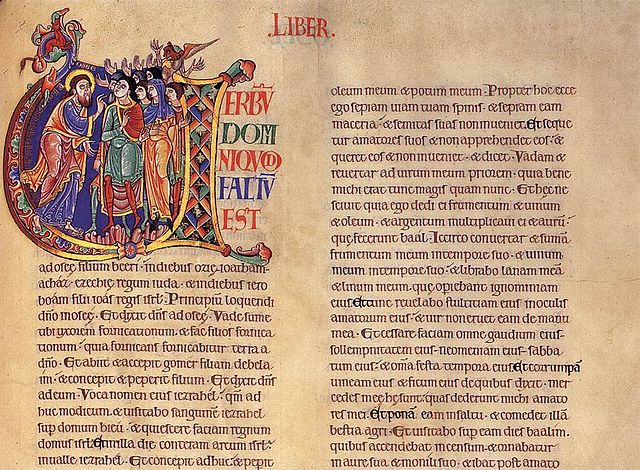 .LIBER.
ERBŪ
DOM
NI QVOD
FACTV
EST
ad osee filium beeri · in diebus ozie · ioatham ·
achaz · ezechie regum iuda · & in diebus iero
boam filii ioas regis isrł · Principiū loquendi
dño in osee · Et dixit dñs ad osee · Vade sume
tibi uxorem fornicationum · & fac filios fornica
tionum · quia fornicans fornicabitur terra a
dño · Et abiit & accepit gomer filiam debela
im · & concepit & peperit filium · Et dixit dñs
ad eum · Voca nomen eius iezrahel · qm̄ ad
huc modicum · & uisitabo sanguinē iezrahel
sup domum hieu · & quiescere faciam regnum
domus isrł · Et in illa die conteram arcum isrł ·
in ualle iezrahel · Et concepit adhuc · & pepit
oleum meum & potum meum · Propter hoc ecce
ego sepiam uiam tuam spinis · & sepiam eam
maceria · & semitas suas non inueniet · Et seque
tur amatores suos & non apprehendet eos · &
queret eos & non inueniet · & dicet · Vadam &
reuertar ad uirum meum priorem · quia bene
michi erat tunc magis quam nunc · Et hec ne
sciuit quia ego dedi ei frumentum & uinum
& oleum · & argentum multiplicaui ei & aurū ·
que fecerunt baal · Iccirco conuertar & sumā
frumentum meum in tempore suo · & uinum
meum in tempore suo · & librabo lanam meā
& linum meum · que opiebant ignominiam
eius · Et nunc reuelabo stultitiam eius in oculis
amatorum eius · & uir non eruet eam de manu
mea · Et cessare faciam omne gaudium eius ·
sollempnitatem eius · neomeniam eius · sabba
tum eius · & om̄ia festa tempora eius · Et corrumpā
uineam eius & ficum eius de quibus dixit · mer
cedes mee he sunt · quas dederunt michi amato
res mei · Et ponā eam in saltu · & comedet illā
bestia agri · Et uisitabo sup eam dies baalim ·
quibus accendebat incensum · & ornabatur
in aure sua & monili suo · & ibat post amato